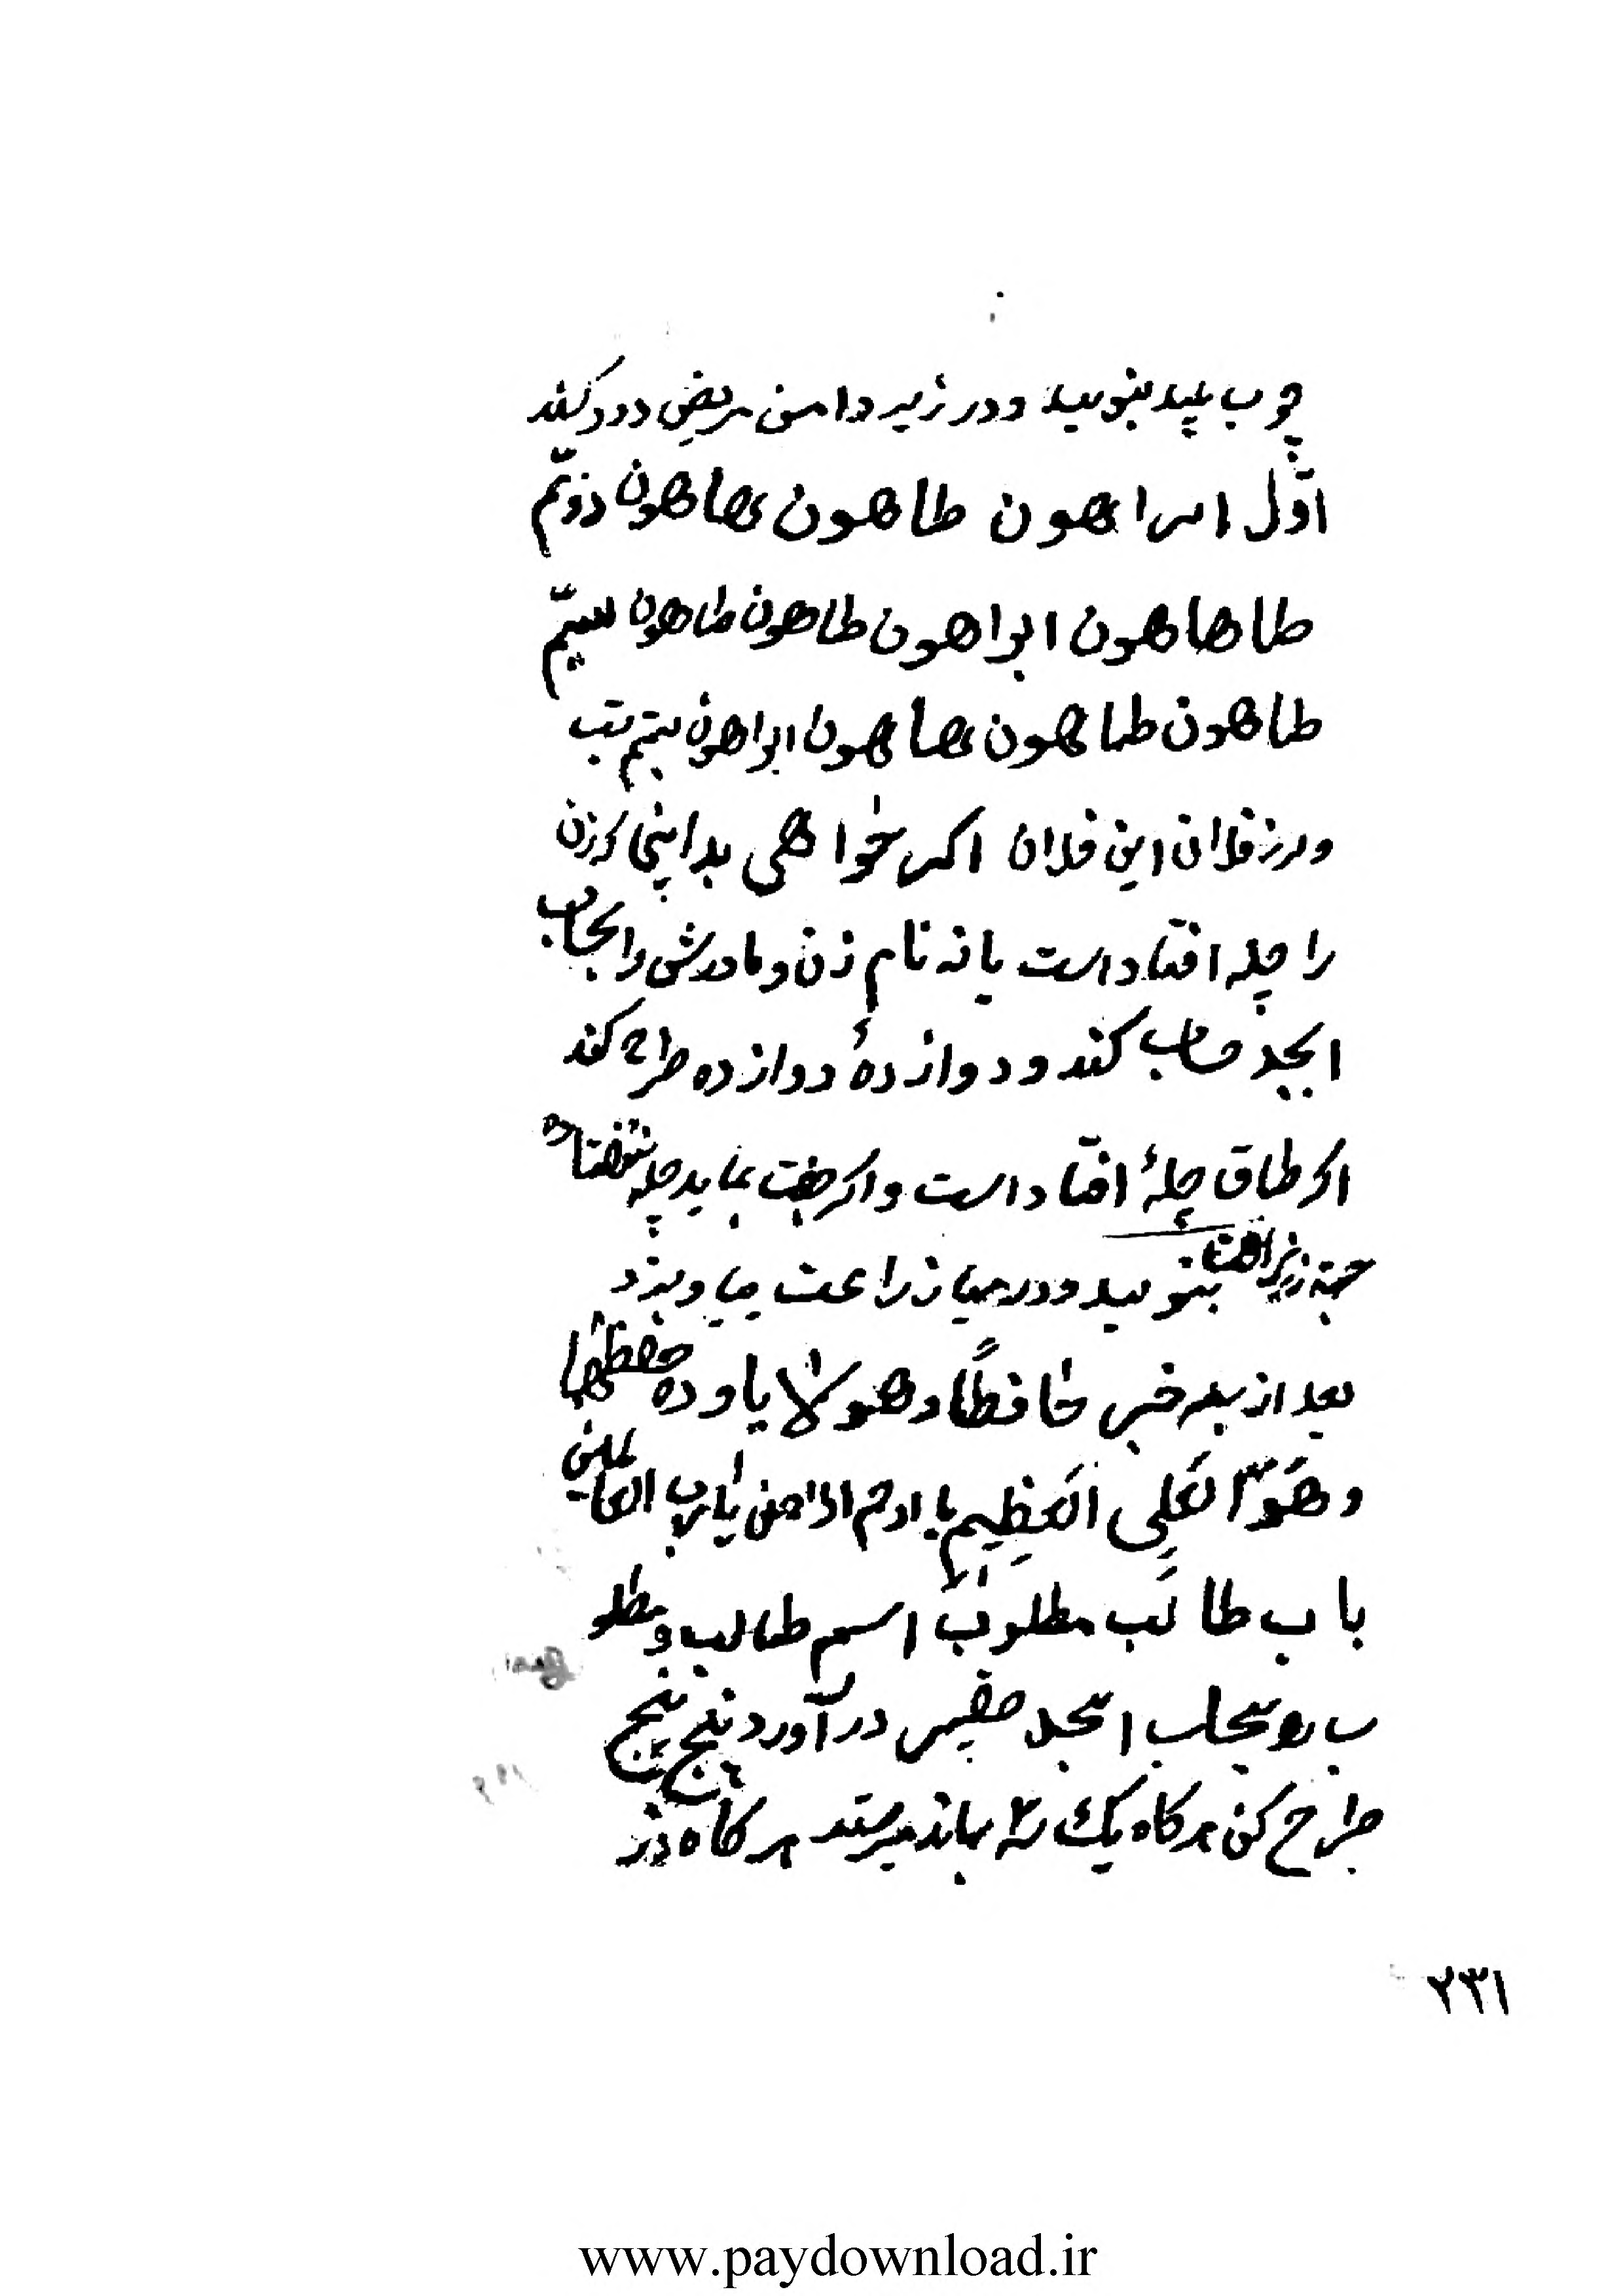 چوب بید بنویسد و در زیر دامن مریض دود کند
اوّل ابراهون طاهون هاهون دوّیم
طاهاهون ابراهون طاهون طاهون سیّم
طاهون طاهون هاهون ابراهون بستم تب
ولرز فلان ابن فلان اکر خواهی بدانی کزن
را چله افتاد است یا نه نام زن و مادرش را بحساب
ابجد حساب کند و دوازدهٔ دوازده طرح کند
اکر طاق چلهٔ افتاد است و اکر جفت بماید چله نیفتاده
جهة زراعت بنویسد و در میان زراعت بیاویزد
حافظاً وهو لا یاوده حفظهما
وهوَ العَلِی العَظِیم یا ارحم الراحمن یا رب العالمین
باب طالب مطلوب اسم طالب و مطلو
ب رو بحساب ابجد در آورد پنج پنج
طرح کن هرکاه یک بماند هرکاه
٢٣١
www.paydownload.ir